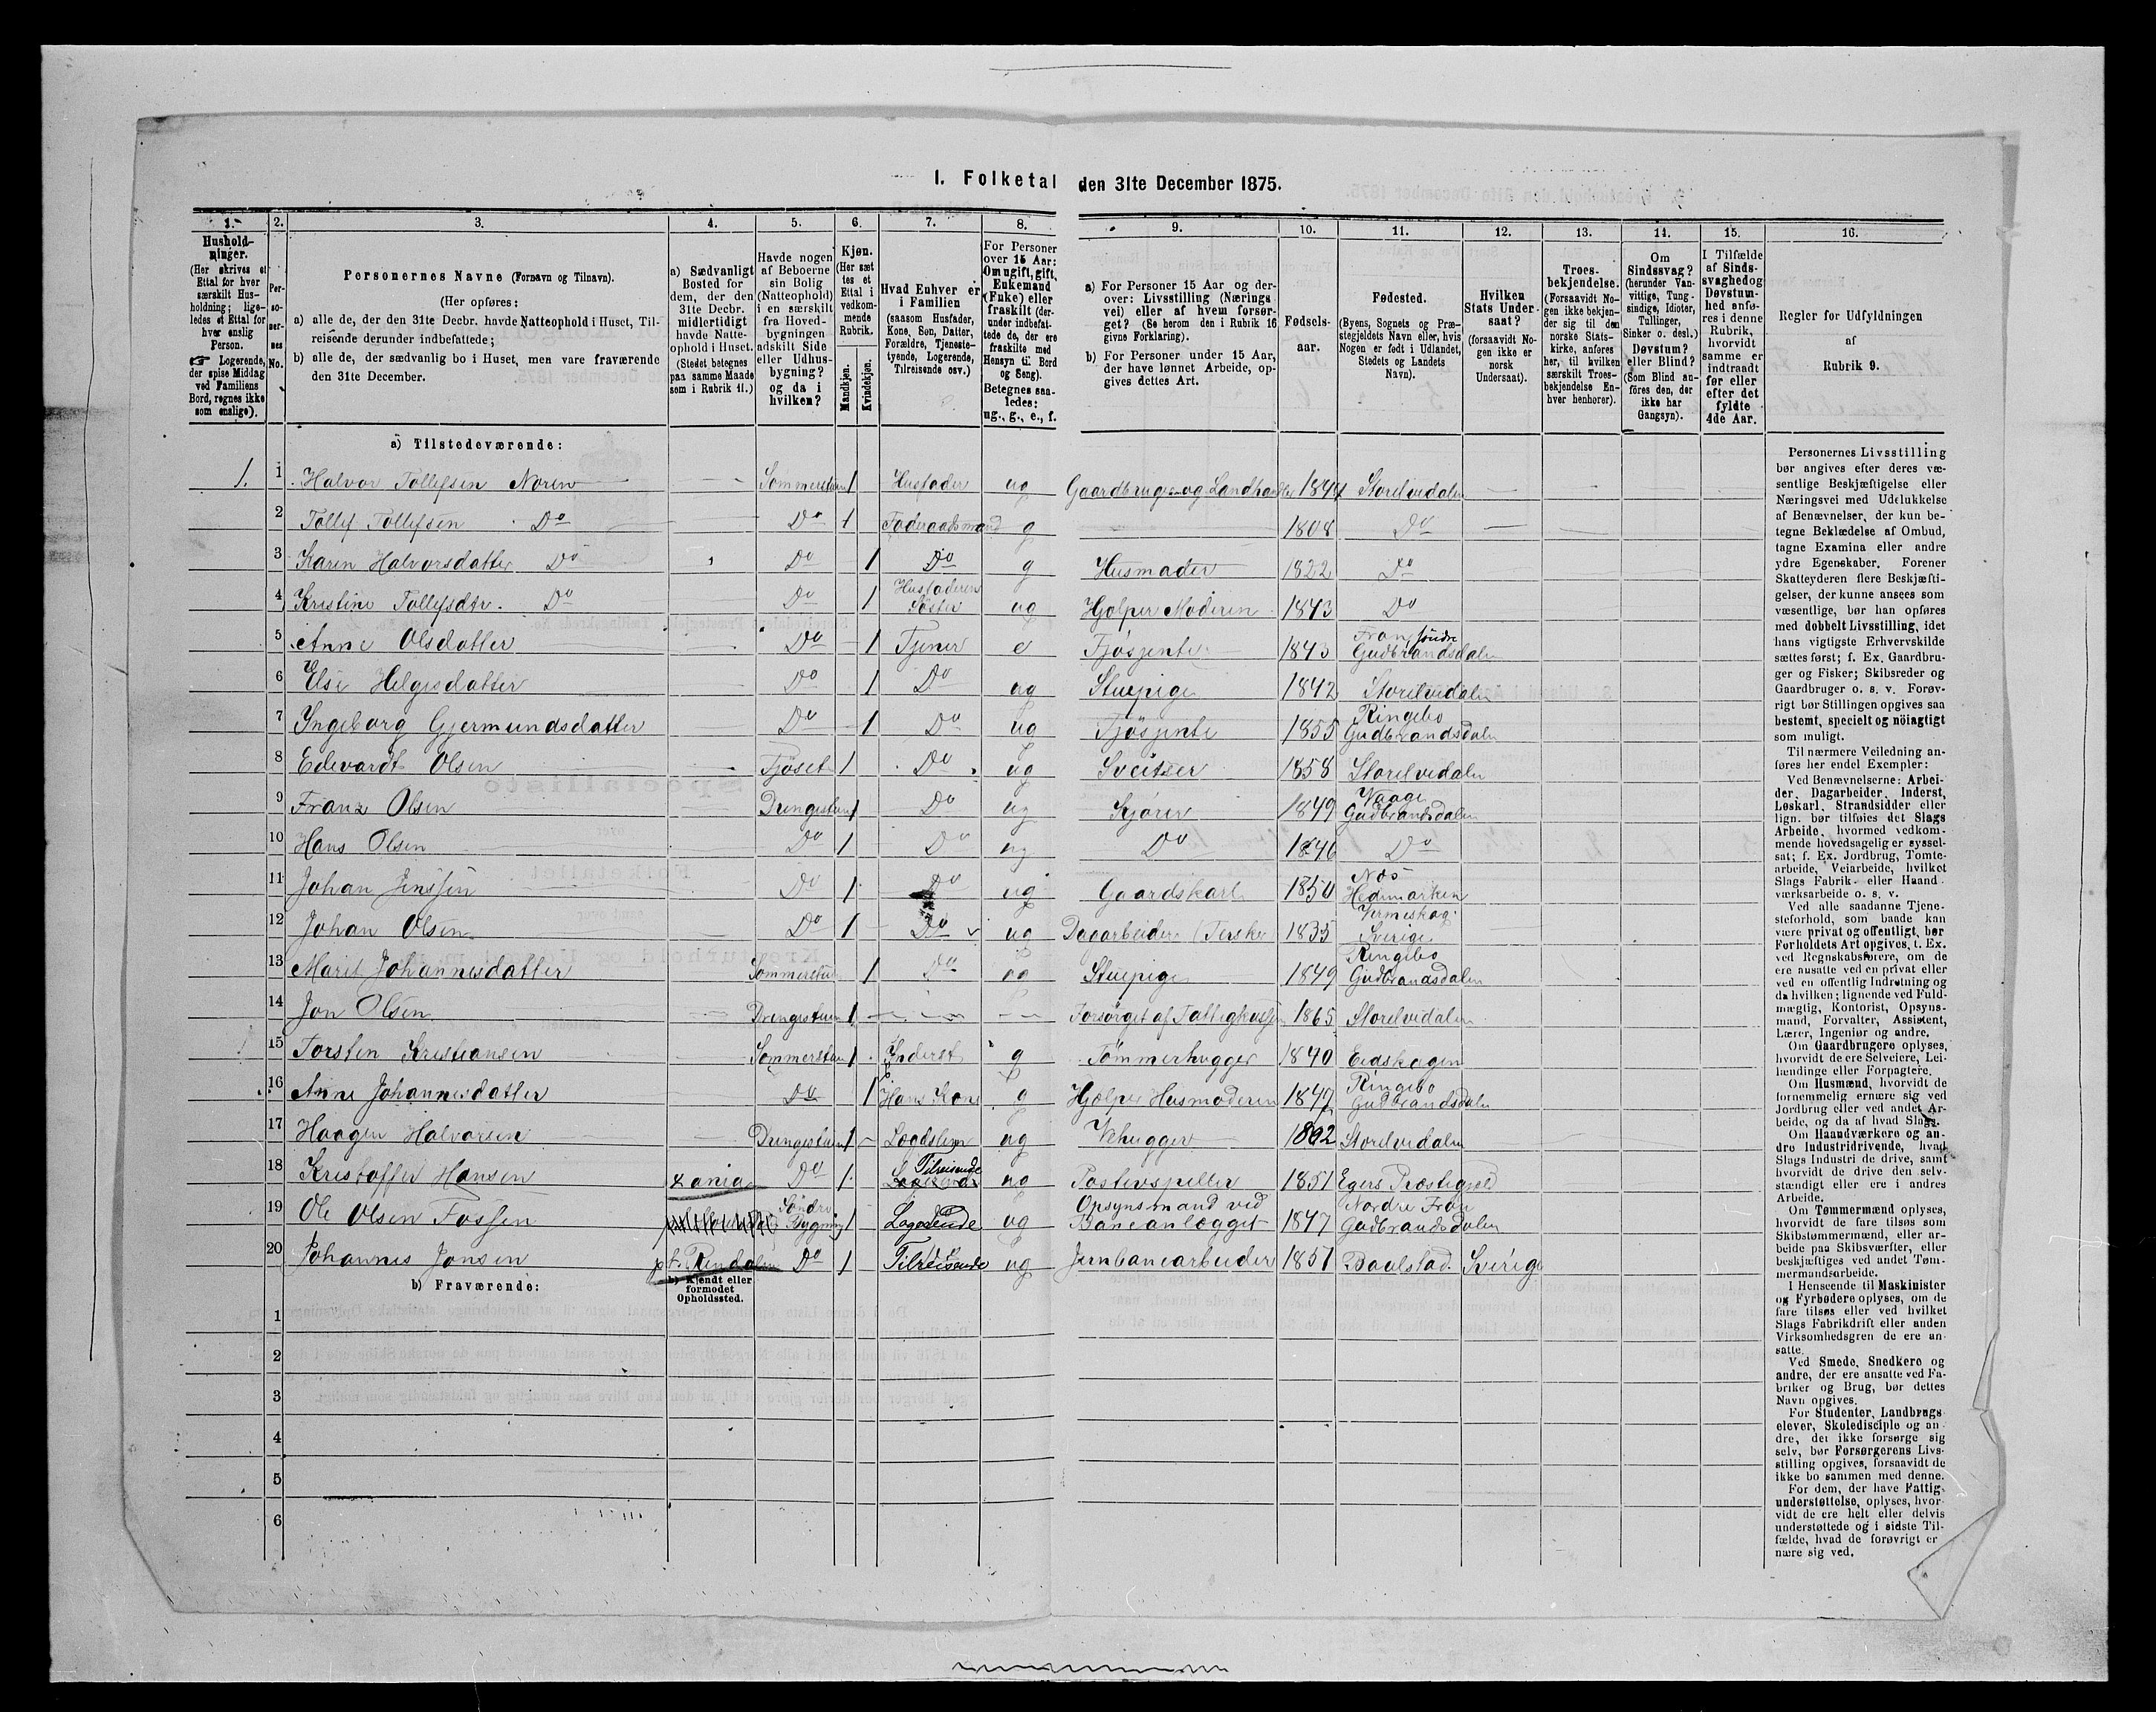 I. Folketal den 31te December 1875.
1. 2. 3. 4. 5. 6. 7. 8. 9. 10. 11. 12. 13. 14. 15. 16.
Husholdninger. (Her skrives et Ettal for hver særskilt Husholdning; ligeledes et Ettal for hver enslig Person. ☞ Logerende, der spise Middag ved Familiens Bord, regnes ikke som enslige).
Personernes No.
Personernes Navne (Fornavn og Tilnavn).
(Her opføres:
a) alle de, der den 31te Decbr. havde Natteophold i Huset, Tilreisende derunder indbefattede;
b) alle de, der sædvanlig bo i Huset, men vare fraværende den 31te December.
a) Sædvanligt Bosted for dem, der den 31te Decbr. midlertidigt havde Natteophold i Huset. (Stedet betegnes paa samme Maade som i Rubrik 11.)
Havde nogen af Beboerne sin Bolig (Natteophold) i en særskilt fra Hovedbygningen adskilt Side eller Udhusbygning? og da i hvilken?
Kjøn. (Her sættes et Ettal i vedkommende Rubrik.
Mandkjøn. Kvindekjøn.
Hvad Enhver er i Familien (saasom Husfader, Kone, Søn, Datter, Forældre, Tjenestetyende, Logerende, Tilreisende osv.)
For Personer over 15 Aar: Om ugift, gift, Enkemand (Enke) eller fraskilt (derunder indbefattede de, der ere fraskilte med Hensyn til Bord og Seng). Betegnes saaledes: ug., g., e., f.
a) For Personer 15 Aar og derover: Livsstilling (Næringsvei) eller af hvem forsørget? (Se herom den i Rubrik 16 givne Forklaring).
b) For Personer under 15 Aar, der have lønnet Arbeide, opgives dettes Art.
Fødselsaar.
Fødested. (Byens, Sognets og Præstegjeldets Navn eller, hvis Nogen er født i Udlandet, Stedets og Landets Navn).
Hvilken Stats Undersaat? (forsaavidt Nogen ikke er norsk Undersaat).
Troesbekjendelse. (Forsaavidt Nogen ikke bekjender sig til den norske Statskirke, anføres her, til hvilken særskilt Troesbekjendelse Enhver henhører).
Om Sindssvag? (herunder Vanvittige, Tungsindige, Idioter, Tullinger, Sinker o. desl.) Døvstum? eller Blind? (Som Blind anføres den, der ikke har Gangsyn).
I Tilfælde af Sindssvaghed og Døvstumhed anføres i denne Rubrik, hvorvidt samme er indtraadt før eller efter det fyldte 4de Aar.
Regler for Udfyldningen af Rubrik 9.
a) Tilstedeværende:
1. 1 Halvor Tollefsen Noren Sommerstuen 1 Husfader ug Gaardbruger og Landhandler 1844 Storelvedalen
2 Tollef Tollefsen Do Do 1 Føderaadsmand g 1808 Do
3 Karen Halvorsdatter Do Do 1 Do g Husmoder 1822 Do
4 Kristine Tollefsdtr. Do Do 1 Husfaderens Söster ug Hjælper Moderen 1843 Do
5 Anne Olsdatter Do 1 Tjener e Fjösjente 1843 Fron söndre Gudbrandsdalen
6 Else Helgesdatter Do 1 Do ug Stuepige 1842 Storelvedalen
7 Ingeborg Gjermundsdatter Do 1 Do ug Fjösjente 1855 Ringebo Gudbrandsdalen
8 Edevardt Olsen Fjöset 1 Do ug Sveitser 1858 Storelvedalen
9 Franz Olsen Drengestuen 1 Do ug Kjörer 1849 Vaage Gudbrandsdalen
10 Hans Olsen Do 1 Do ug Do 1846 Do
11 Johan Jenssen Do 1 Do ug Gaardskarl 1850 Næs Hedemarken
12 Johan Olsen Do 1 Do ug Dagarbeider (Tersker 1835 Vermeskog Sverige
13 Marit Johannesdatter Sommerstuen 1 Do ug Stuepige 1849 Ringebo Gudbrandsdalen
14 Jon Olsen Drengestuen 1 Forsörget af Fattigkassen 1865 Storelvedalen
1 15 Torsten Kristiansen Sommerstuen 1 Inderst g Tömmerhugger 1840 Eidskogen
16 Anne Johannesdatter Do 1 Hans Kone g Hjælper Husmoderen 1847 Ringebo Gudbrandsdalen
17 Haagen Halvorsen Drengestuen 1 Lægdslem ug Vehugger 1802 Storelvedalen
18 Kristoffer Hansen Do 1 Tilreisende ug 1851 Egers Præstegjeld
19 Ole Olsen Fossen Söndre Bygning 1 Logerende ug Opsynsmand ved Baneanlægget 1847 Nordre Fron Gudbrandsdalen
20 Johannes Jonsen Rendalen Do 1 Tilreisende ug Jernbanearbeider 1851 Sverige
b) Fraværende:
b) Kjendt eller formodet Opholdssted.
1
2
3
4
5
6
Personernes Livsstilling
bør angives efter deres væ-
sentlige Beskjæftigelse eller
Næringsvei med Udelukkelse
af Benævnelser, der kun be-
tegne Beklædelse af Ombud,
tagne Examina eller andre
ydre Egenskaber. Forener
Skatteyderen flere Beskjæfti-
gelser, der kunne ansees som
væsentlige, bør han opføres
med dobbelt Livsstilling, idet
hans vigtigste Erhvervskilde
sættes først; f. Ex. Gaardbru-
ger og Fisker; Skibsreder og
Gaardbruger o. s. v. Forøv-
rigt bør Stillingen opgives saa
bestemt, specielt og nöiagtigt
som muligt.
Til nærmere Veiledning an-
føres her endel Exempler:
Ved Benævnelserne: Arbei-
der, Dagarbeider, Inderst,
Løskarl, Strandsidder eller
lign. bør tilføies det Slags
Arbeide, hvormed vedkom-
mende hovedsagelig er syssel-
sat; f. Ex. Jordbrug, Tomte-
arbeide, Veiarbeide, hvilket
Slags Fabrik- eller Haand-
værksarbeide o. s. v.
Ved alle saadanne Tjene-
steforhold, som baade kan
være privat og offentligt, bør
Forholdets Art opgives, t. Ex.
ved Regnskabsførere, om de
ere ansatte ved en privat eller
ved en offentlig Indretning og
da hvilken; lignende ved Fuld-
mægtig, Kontorist, Opsyns-
mand, Forvalter, Assistent,
Lærer, Ingeniør og andre.
Om Gaardbrugere oplyses,
hvorvidt de ere Selveiere, Lei-
lændinge eller Forpagtere.
Om Husmænd, hvorvidt de
fornemmelig ernære sig ved
Jordbrug eller ved andet Ar-
beide, og da af hvad Slags.
Om Haandværkere og an-
dre Industridrivende, hvad
Slags Industri de drive, samt
hvorvidt de drive den selv-
stændigt eller ere i andres
Arbeide.
Om Tømmermænd oplyses,
hvorvidt de fare tilsøs som
Skibstømmermænd, eller ar-
beide paa Skibsværfter, eller
beskjæftiges ved andet Tøm-
mermandsarbeide.
I Henseende til Maskinister
og Fyrbødere oplyses, om de
fare tilsøs eller ved hvilket
Slags Fabrikdrift eller anden
Virksomhedsgren de ere an-
satte.
Ved Smede, Snedkere og
andre, der ere ansatte ved Fa-
briker og Brug, bør dettes
Navn opgives.
For Studenter, Landbrugs-
elever, Skoledisciple og an-
dre, der ikke forsørge sig
selv, bør Forsørgerens Livs-
stilling opgives, forsaavidt de
ikke bo sammen med denne.
For dem, der have Fattig-
understøttelse, oplyses, hvor-
vidt de ere helt eller delvis
understøttede og i sidste Til-
fælde, hvad de forøvrigt er-
nære sig ved.